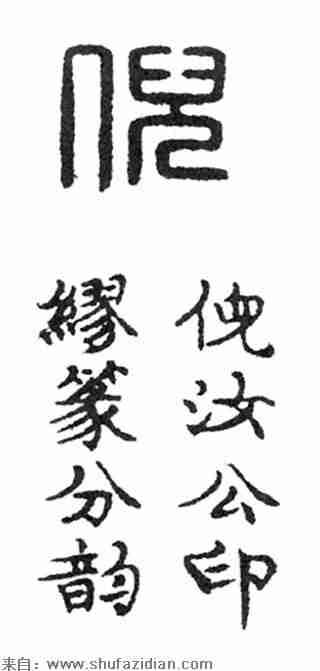 倪
倪汝公印
繆篆分韵
来自：www.shufazidian.com